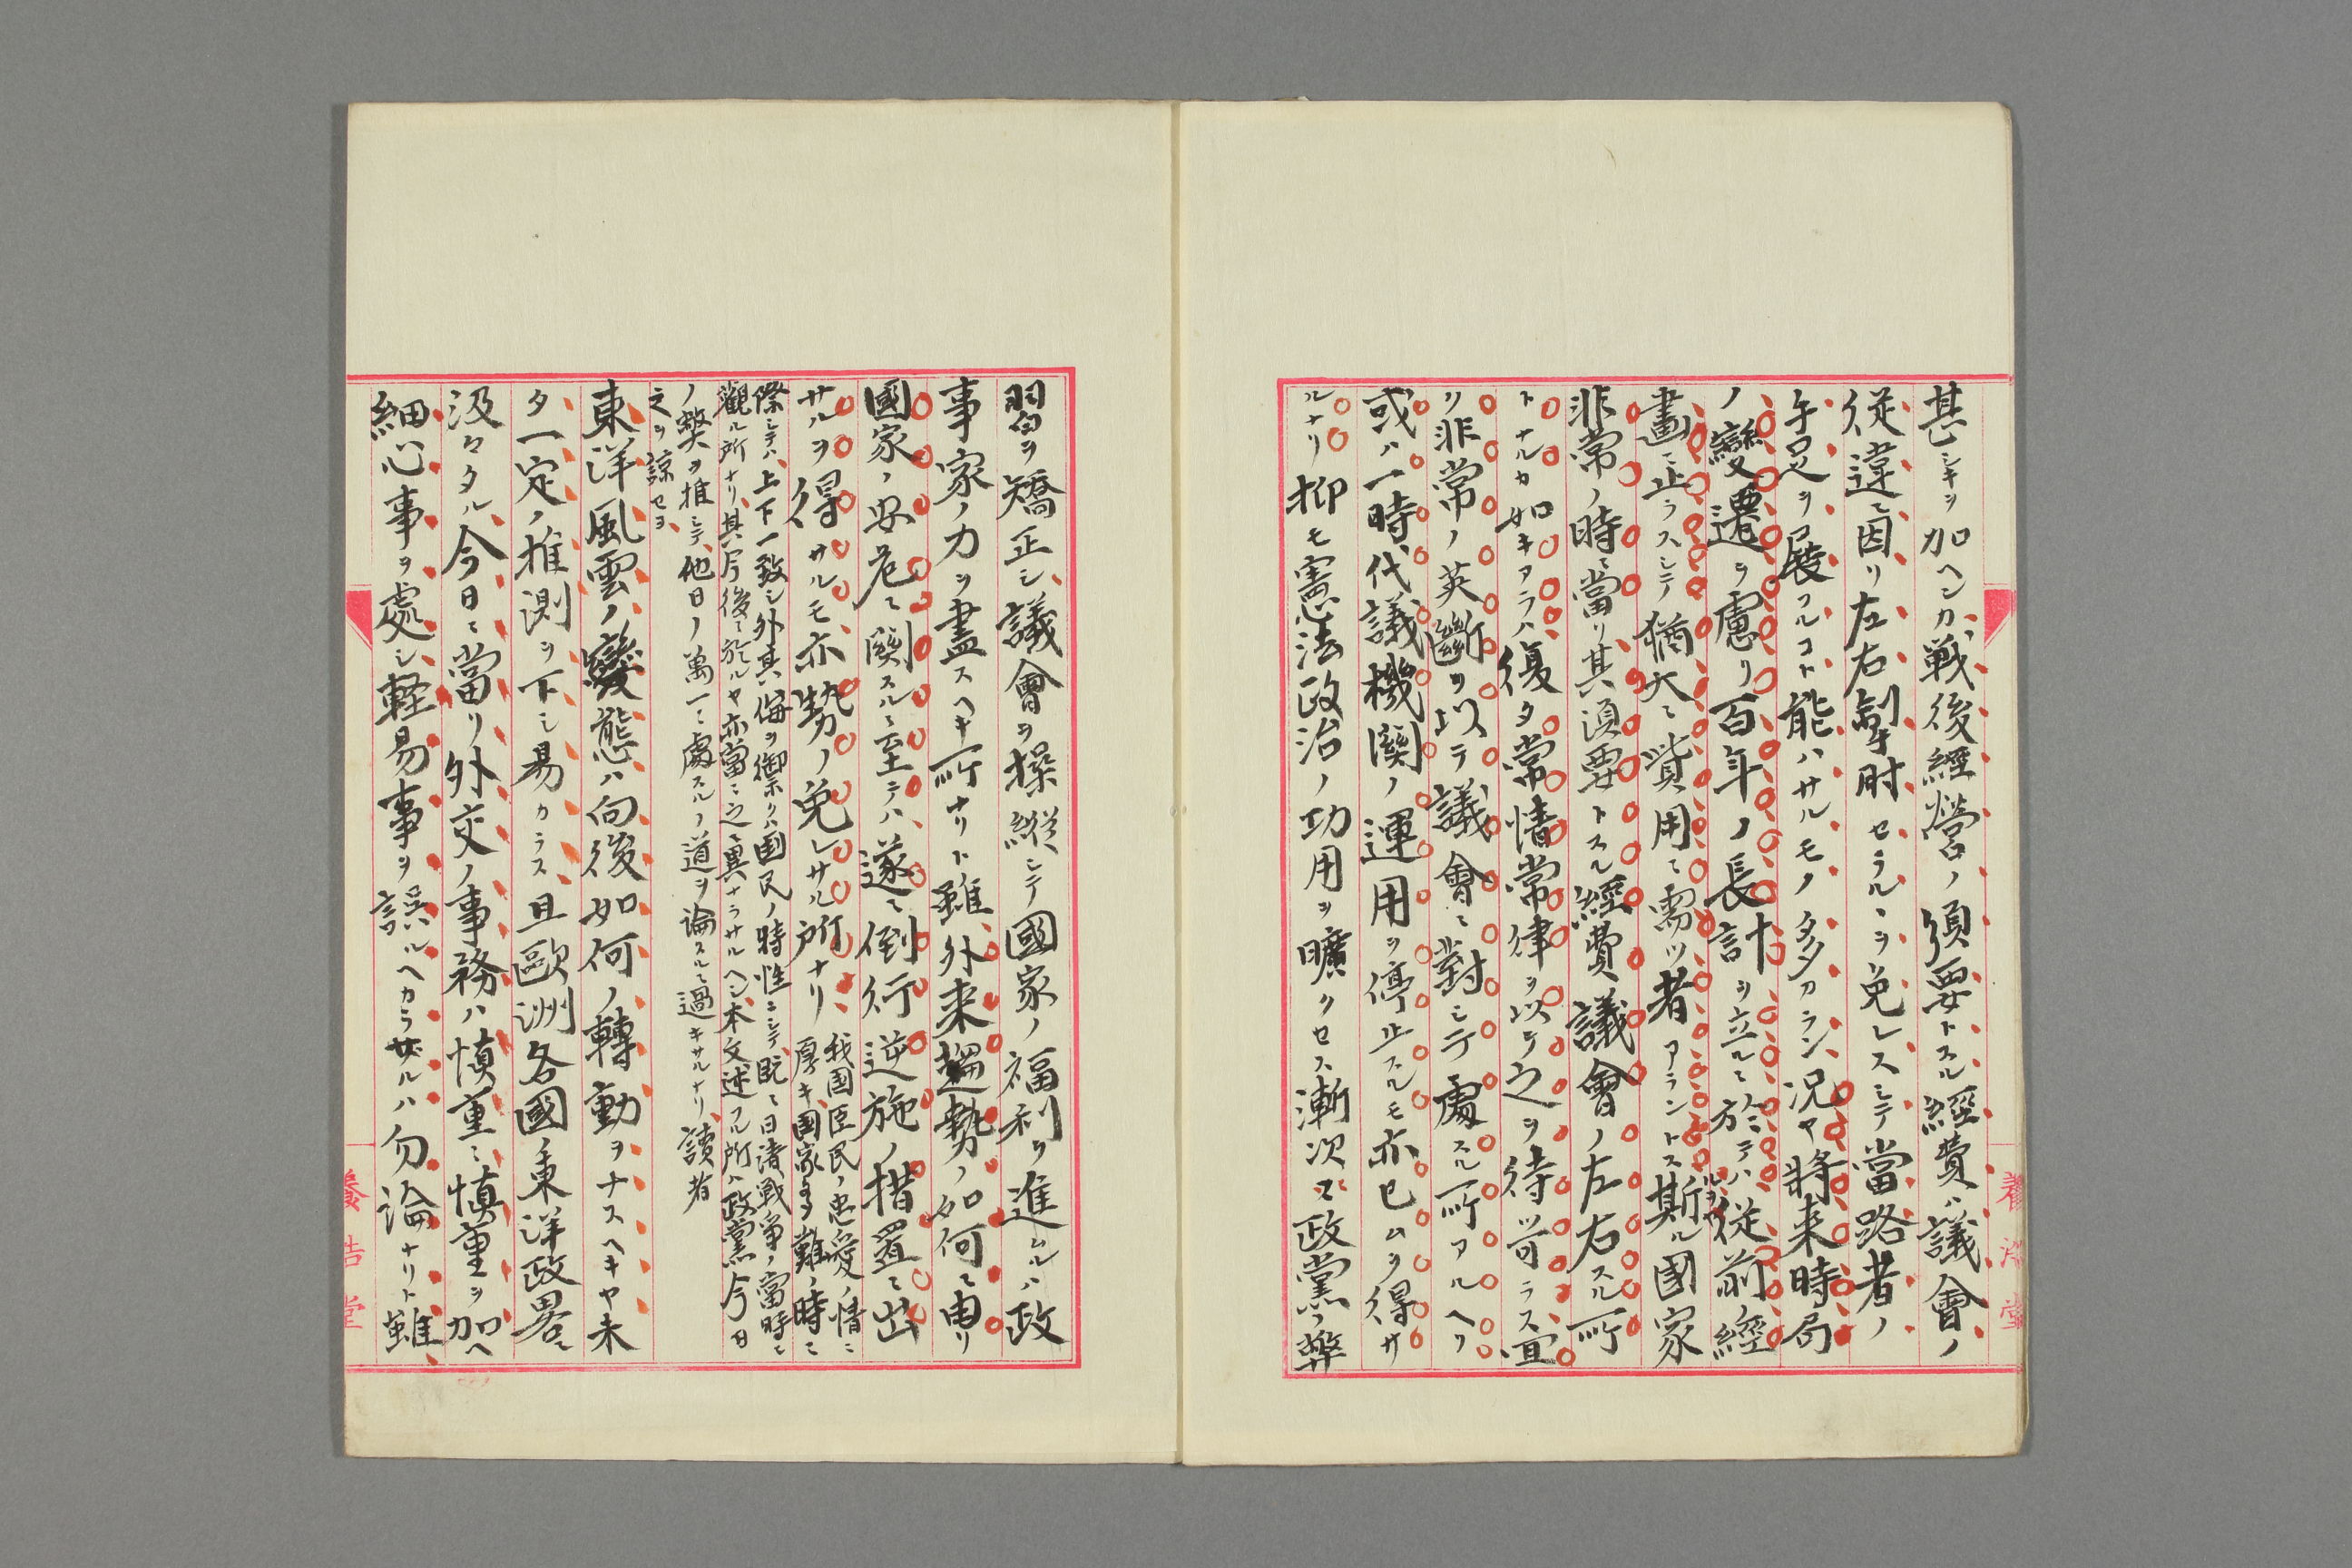 甚シキヲ加ヘンカ、戦後經營ノ須要トスル經費ハ議會ノ
従違ニ因リ、左右掣肘セラルヽヲ免レスシテ、當路者ノ
手足ヲ展フルコト能ハサルモノ多カラン、況ヤ将来時局
ノ變遷ヲ慮リ百年ノ長計ヲ立ルニ於テハ、従前經
畫ニ止ラスシテ、猶大ニ貲用ニ需ツ者アラントス、斯ル國家
非常ノ時ニ當リ、其須要トスル經費、議會ノ左右スル所
トナルカ如キアラハ、復タ常情常律ヲ以テ之ヲ待ツ可ラス、宜
リ非常ノ英斷ヲ以テ議會ニ對シテ處スル所アルヘク
或ハ一時代議機関ノ運用ヲ停止スルモ亦已ムヲ得サ
ルナリ、抑モ憲法政治ノ功用ヲ曠クセス、漸次ニ政黨ノ弊
習ヲ矯正シ、議會ヲ操縦シテ國家ノ福利ヲ進ムルハ、政
事家ノ力ヲ盡スヘキ所ナリト雖、外来趨勢ノ如何ニ由リ
國家ノ安危ニ関スルニ至テハ、遂ニ倒行逆施ノ措置ニ出
サルヲ得サルモ、亦勢ノ免レサル所ナリ、
我国臣民ノ忠愛ノ情ニ
厚キ、国家多難ノ時ニ
際シテハ、上下一致シ外其侮ヲ禦クハ国民ノ特性ニシテ、既ニ日清戦争ノ當時ニ
觀ル所ナリ、其今後ニ於ルヤ亦當ニ之ニ異ナラサルヘシ、本文述フル所ハ政黨今日
ノ弊ヲ推シテ、他日ノ萬一ニ處スルノ道ヲ論スルニ過キサルナリ、讀者
之ヲ諒セヨ
東洋風雲ノ變態ハ向後如何ノ轉動ヲナスヘキヤ、未
タ一定ノ推測ヲ下シ易カラス、且歐洲各國ノ東洋政畧ニ
汲々タル今日ニ當リ、外交ノ事務ハ慎重ニ慎重ヲ加ヘ
細心事ヲ處シ、軽易事ヲ誤ルヘカラサルハ勿論ナリト雖、